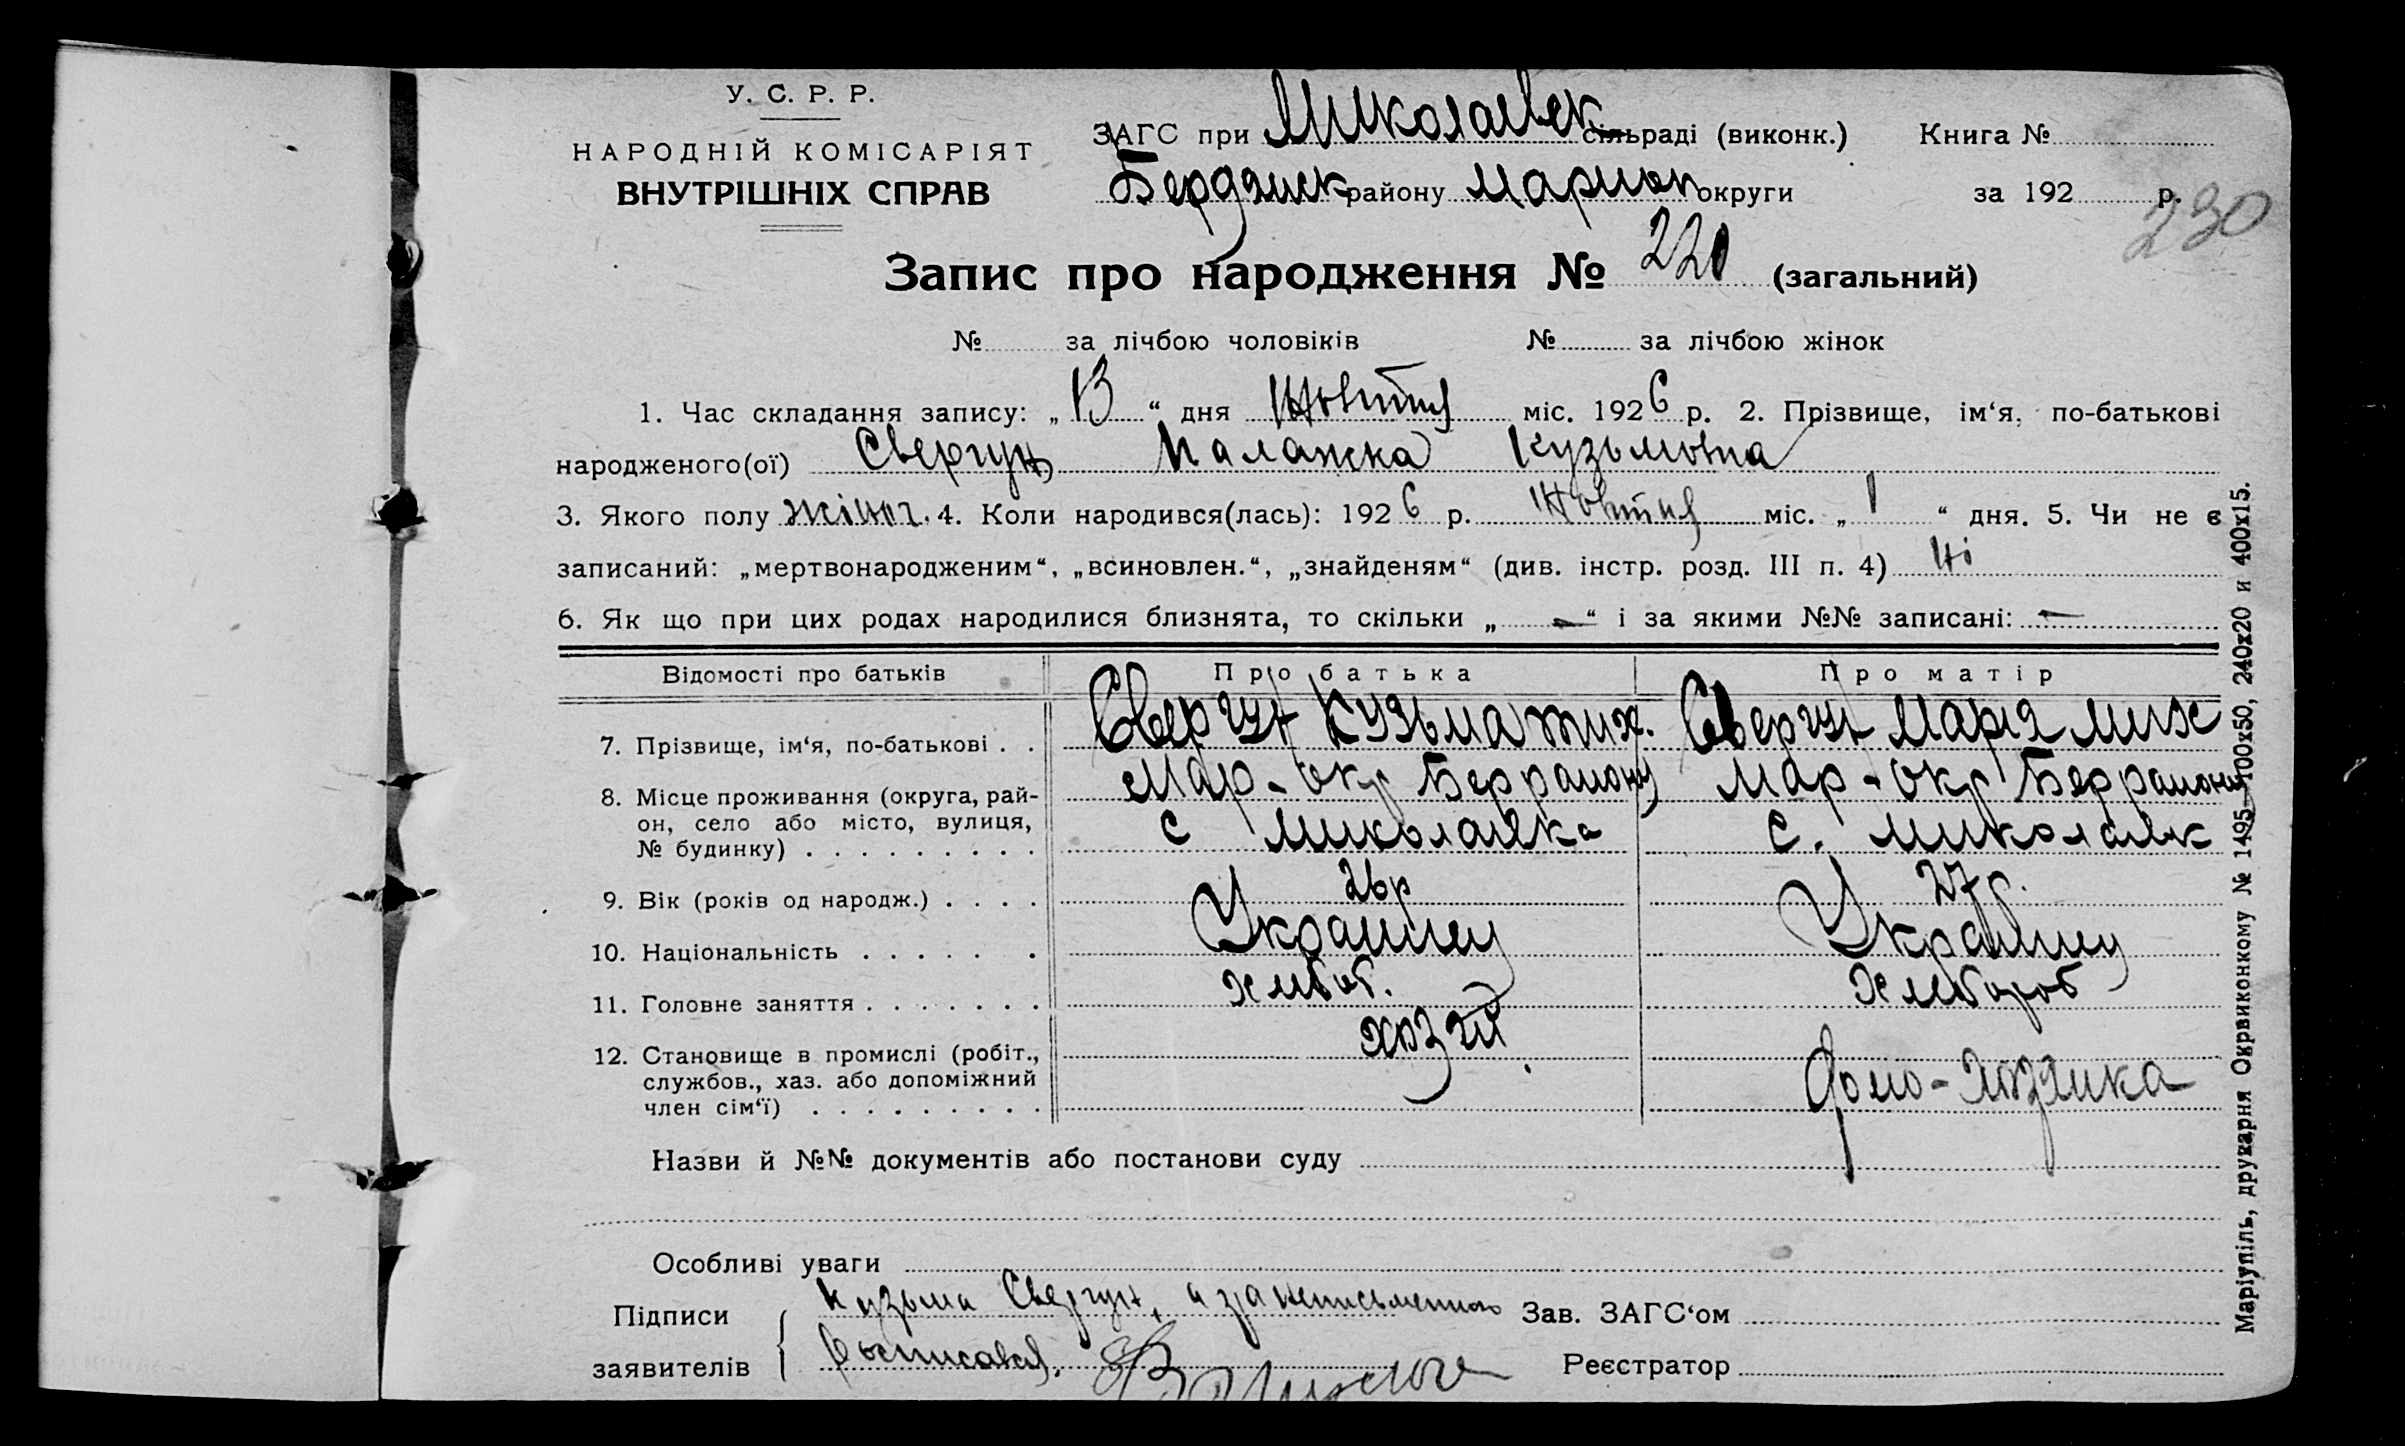 У. С. Р. Р.
НАРОДНІЙ КОМІСАРІЯТ
ВНУТРІШНІХ СПРАВ
ЗАГС при Миколаевск сільраді (виконк.) Книга №
Бердянск району Мариоп округи за 192 р.
230
Запис про народження № 220 (загальний)
№ за лічбою чоловіків № за лічбою жінок
1. Час складання запису: „13“ дня Жовтня міс. 1926 р. 2. Прізвище, ім‘я, по-батькові
народженого(ої) Свергун Палажка Кузьмовна
3. Якого полу жіноч. 4. Коли народився(лась): 1926 р. Жовтня міс. „1“ дня. 5. Чи не є
записаний: „мертвонародженим“, „всиновлен.“, „знайденям“ (див. інстр. розд. III п. 4) Ні
6. Як що при цих родах народилися близнята, то скільки „—“ і за якими №№ записані: —
Відомості про батьків Про батька Про матір
7. Прізвище, ім‘я, по-батькові . . Свергун Кузьма Тих. Свергун Марія Мих
8. Місце проживання (округа, рай- Мар-окр Беррайону Мар-окр Беррайону
он, село або місто, вулиця, с Миколаівка с. Миколаівк
№ будинку) . . . . . . . . .
9. Вік (років од народж.) . . . . 26р 27р.
10. Національність . . . . . . Украинец Украинец
11. Головне заняття . . . . . . . Хлібоб. Хлебороб
12. Становище в промислі (робіт., хозяй
службов., хаз. або допоміжний домо-хозяйка
член сім‘ї) . . . . . . . . .
Назви й №№ документів або постанови суду
Особливі уваги
Підписи Кузьма Свергун, а за неписьменного Зав. ЗАГС‘ом
заявителів росписався. Реєстратор
Маріупіль, друкарня Окрвиконкому № 1495—100х50, 240х20 и 400х15.